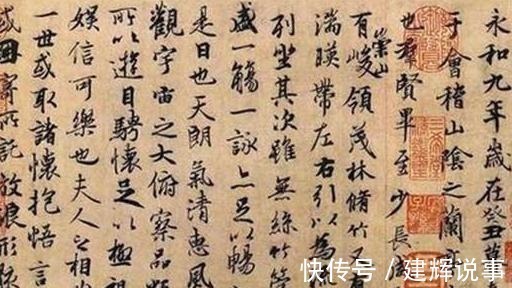 永和九年歲在癸丑
于會稽山陰之蘭亭
也羣賢畢至少長
有崇山峻領茂林脩竹又
湍暎帶左右引以為
列坐其次雖無絲竹管
盛一觴一詠亦足以暢
是日也天朗氣清惠風
觀宇宙之大俯察品類
所以遊目騁懷足以極視
娛信可樂也夫人之相
一世或取諸懷抱悟言
或因寄所託放浪形骸
快传号 / 建辉说事